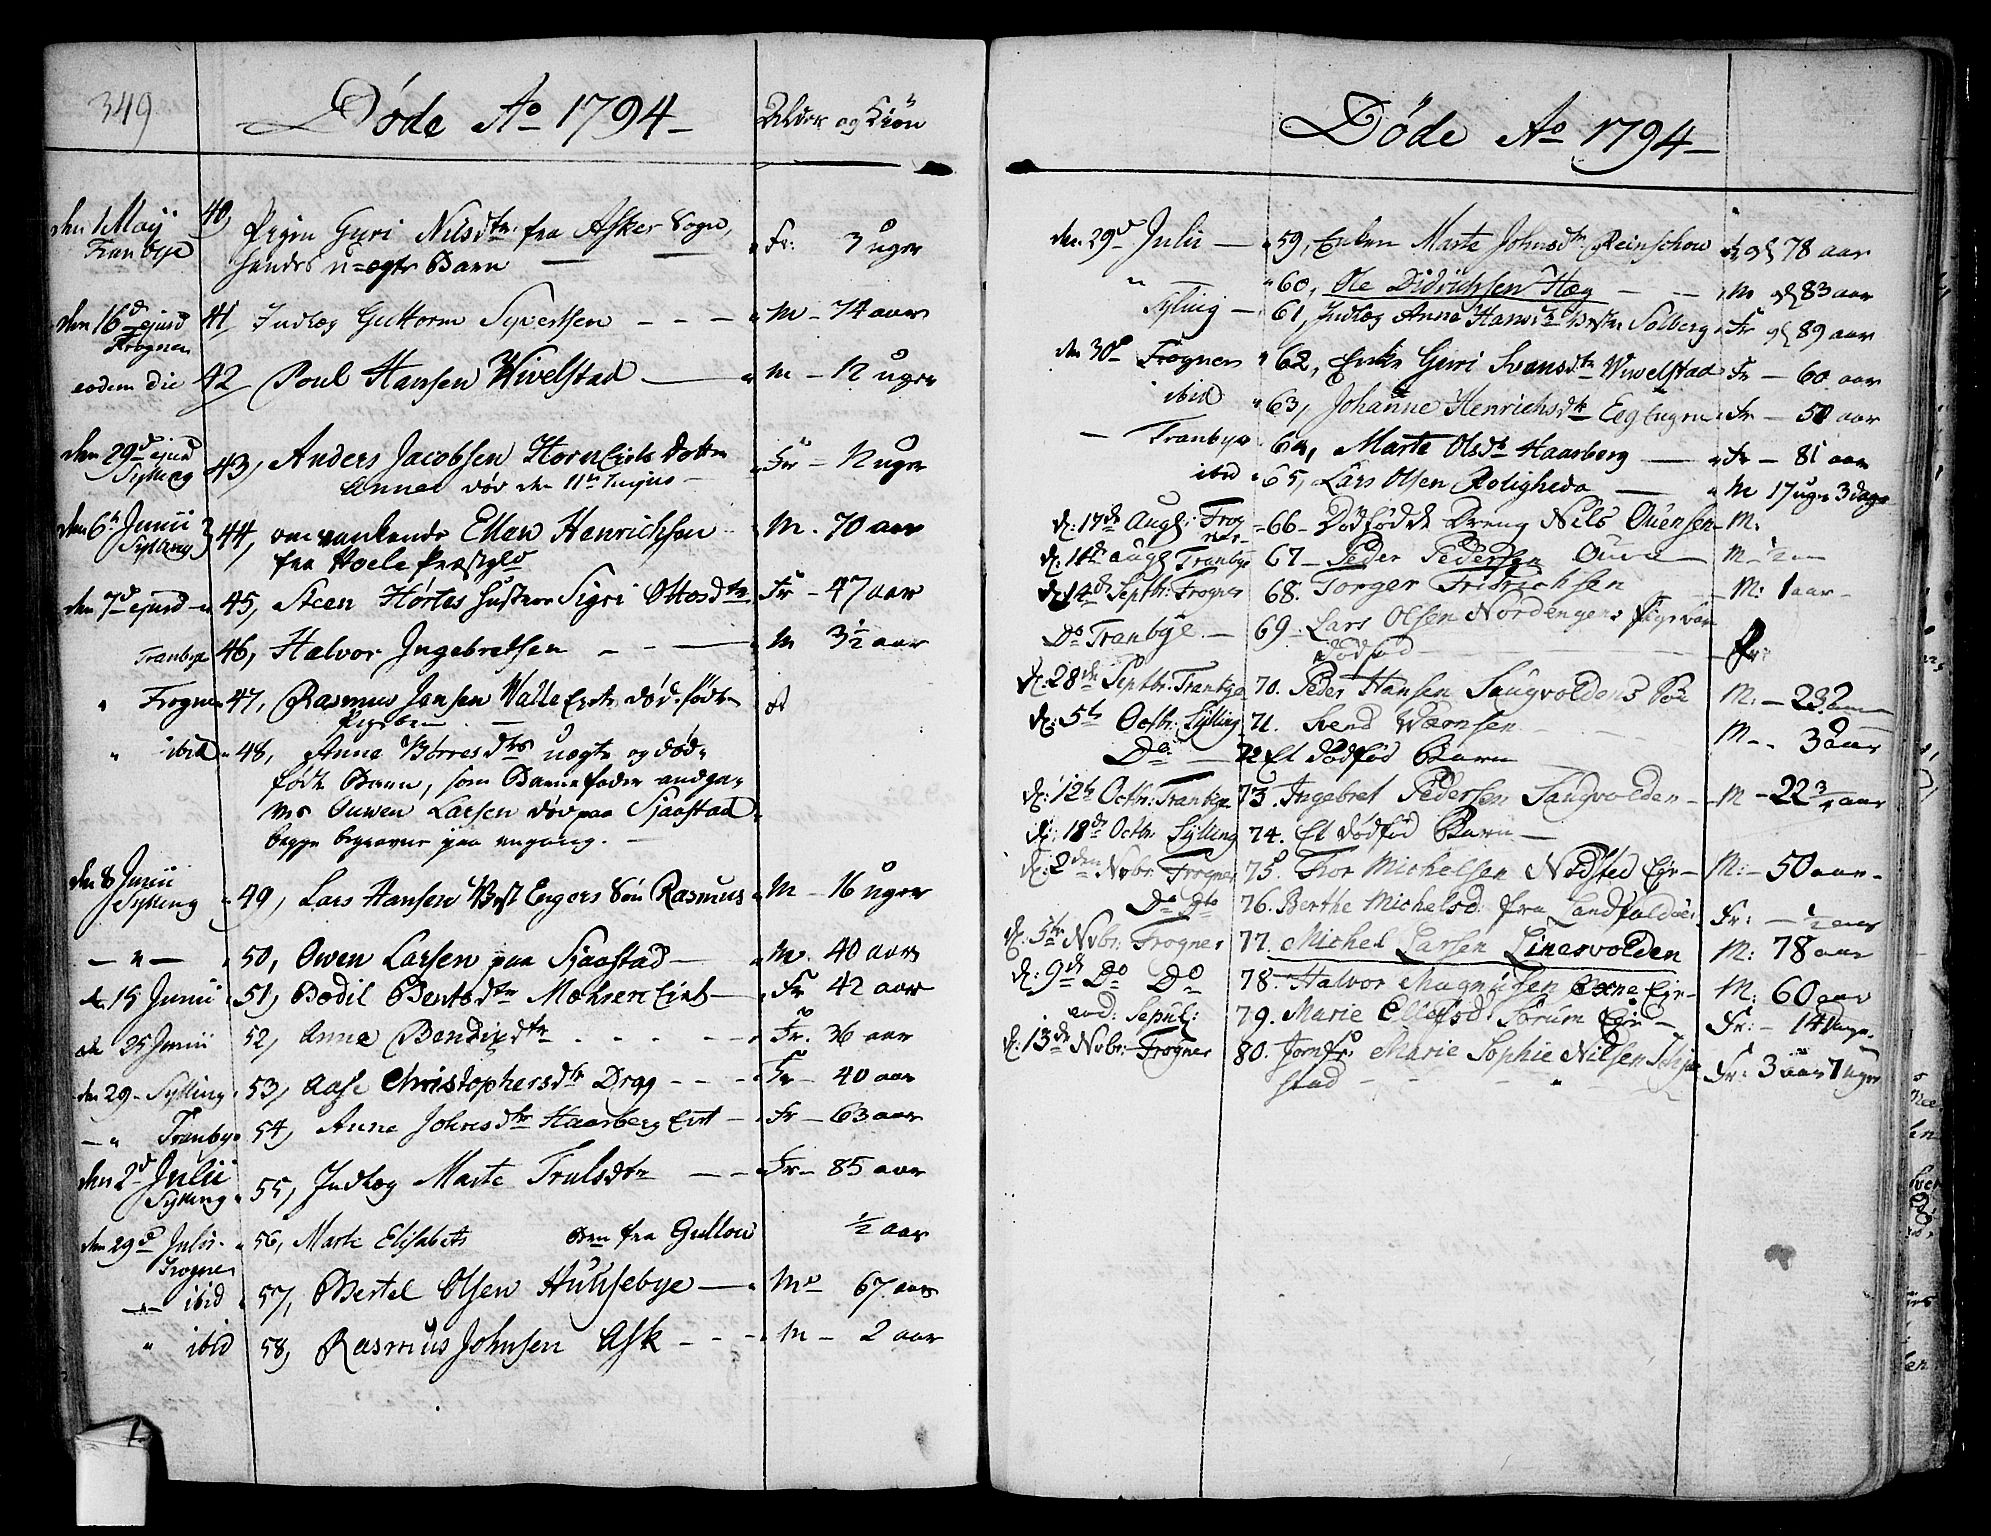 349
Døde Ao 1794
Alder og Kiøn
den 1 Maij
Tranbye
40, Pigen Guri Nilsdtr: fra Asker Sogn, Fr: 3 uger
hendes u=ægte Barn
den 16d ejusd
Frogner
41, Indlæg Guttorm Syvertsen - - - M - 74 aar
eodem die 42 Poul Hansen Wivelstad — M - 12 uger
den 29d ejusd
Sylling
43, Anders Jacobsen Horn Eiets Dotter Fr - 12 uger
Anne død den 11te hujus -
den 6te Junii
Sylling
44, omvankende Ellen Henrichsen M. 70 aar
fra Hole Præstgld
den 7d ejusd 45, Steen Hørtes Hustroe Sigri Ottosdtr Fr - 47 aar
Tranbye 46, Halvor Ingebretsen - - M 3½ aar
Frogner 47, Rasmus Jensen Walle Eiets død-født
Pigebarn
ibid 48, Anna Børresdtrs uægte og død-
født Barn, som Barnefader angga-
ves Ouwen Larsen død paa Sjaastad
begge begravne paa engang. -
den 8 Junii
Sylling
49, Lars Hansen West Engers Søn Rasmus M - 16 uger
50, Owen Larsen paa Sjaastad — M. 40 aar
d. 15 Junii 51, Bodil Bentsdtr Mæhren Eiet — Fr 42 aar
d. 25 Junii 52, Anna Bendixdtr Fr. 36 aar
den 29 - Sylling 53, Aase Christophersdtr Drag - - - Fr - 40 aar
Tranbye 54, Anne Johnsdtr Haarberg Eiet - Fr - 63 aar
den 2d Julii
Sylling
55, Indlæg Marte Trulsdtr - - Fr - 85 aar
den 29d Julii
Frogner
56, Marte Elisabets Barn fra Gullow ½ aar
ibid 57, Bertel Olsen Huusebye — M 67 aar
ibid 58, Rasmus Johnsen Ask - - - M - 2 aar
Døde Ao 1794
den 29d Julii — 59, Enken Marte Johnsdtr Reinschou 78 aar
60, Ole Didrichsen Hæg - - M 83 aar
Sylling — 61, Indlæg Anne Hansdtr Solberg Fr 89 aar
den 30d Frogner 62, Enke Guri Svensdtr Wiwelstad Fr - 60 aar
ibid 63, Johanne Henrichsdtr Fr - 50 aar
Tranbye 64, Marte Olsdtr Haarberg — Fr - 81 aar
ibid 65, Lars Olsen Roligheds — M 17 uger 3 dage
d: 17de Aug: Frog
ner
66 - Dødfødde Dreng Nils Ouensen M:
Aug: Tranbye 67 - Peder Pedersen M - ½ aar
d: 14de Septbr: Frogner 68. Torger Fridrichsen M: 1 aar -
Do Tranbye. - 69 - Lars Olsen Nordengens Pigebarn
dødfød Fr:
d: 28de Septbr: Tranbye 70. Peder Hansen M: -
d: 5te Octbr: Sylling 71. Svend M - - 3 aar
Do — 72 Et dødfød Barn
d: 12te Octbr: Tranbye 73. Ingebret Pedersen Sangvolden - M - 22 ¾ aar
d: 18de Octbr: Sylling 74. Et dødfød Barn -
d: 2den Nvbr: Frogner 75. Thor Michelsen Nøsted Eje - M: - 50 aar -
Do Do 76. Berthe Michelsd: fra Landfaldøe: Fr: - ½ aar
d: 5te Nvbr: Frogner 77. Michel Larsen Linesvolden M: 78 aar
d: 9de Do Do 78. Halvor Magnusen Eje - M: 60 aar
eod: Sepul: 79. Marie Ellefsd Sørum Eje - Fr: - 14 Dage.
d: 13de Nvbr: Frogner 80. Jomfr: Marie Sophie Nilsen
stad - - - Fr: 3 aar 7 uger